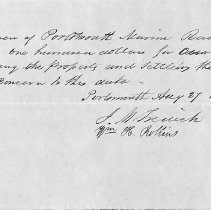 of Portsmouth Marine
one hundred dollars for
the property and settling the
concern to this date -
Portsmouth Aug 27
J. M.
Wm H. Rollins